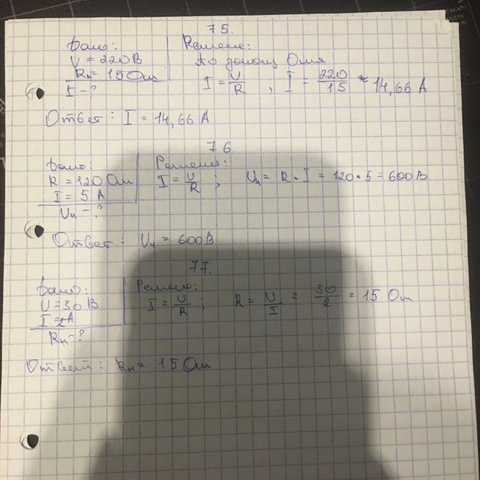 75.
Дано:
U = 220 В
Rн = 15 Ом
I - ?
Решение:
По закону Ома
I = U/R , I = 220/15 ≈ 14,66 А
Ответ: I = 14,66 А
76.
Дано:
R = 120 Ом
I = 5 А
Uн - ?
Решение:
I = U/R ; Uн = R · I = 120 · 5 = 600 В
Ответ: Uн = 600 В
77.
Дано:
U = 30 В
I = 2 А
Rн - ?
Решение:
I = U/R ; R = U/I = 30/2 = 15 Ом
Ответ: Rн = 15 Ом